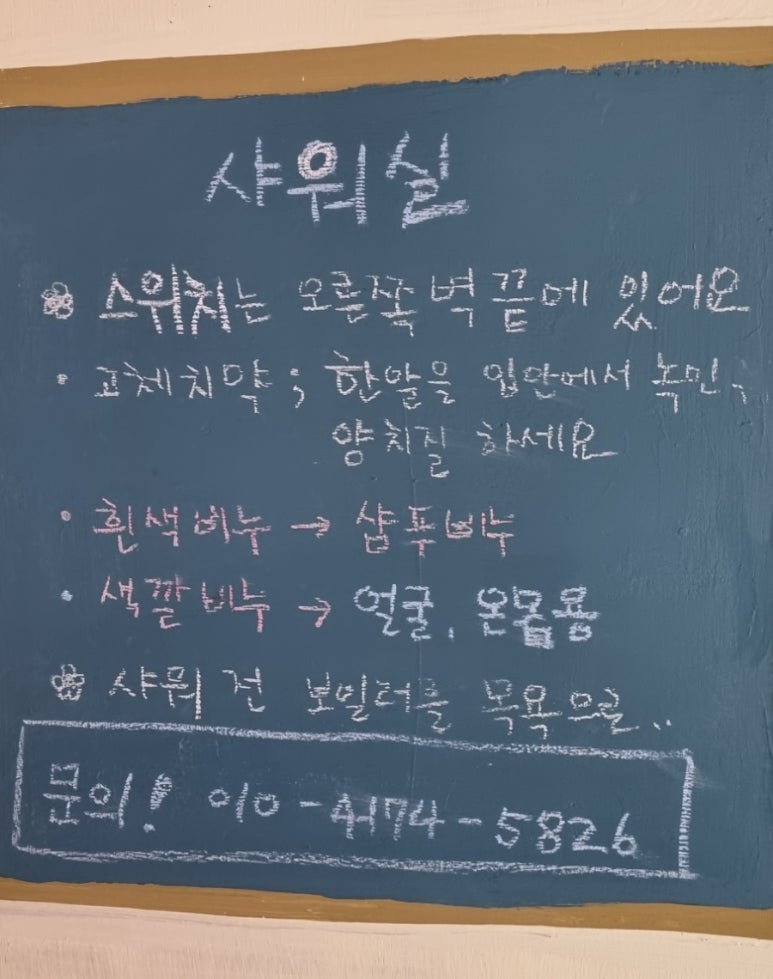 샤워실
❀ 스위치는 오른쪽 벽 끝에 있어요
· 고체치약 ; 한알을 입안에서 녹인,
양치질 하세요
· 흰색비누 → 샴푸비누
· 색깔비누 → 얼굴, 온몸용
❀ 샤워 전 보일러를 목욕으로..
문의! 010-4174-5826